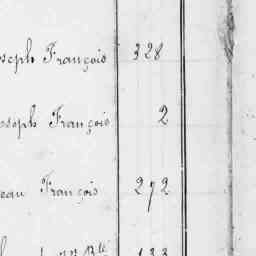 oseph François 328
oseph François 2
eau François 272
133